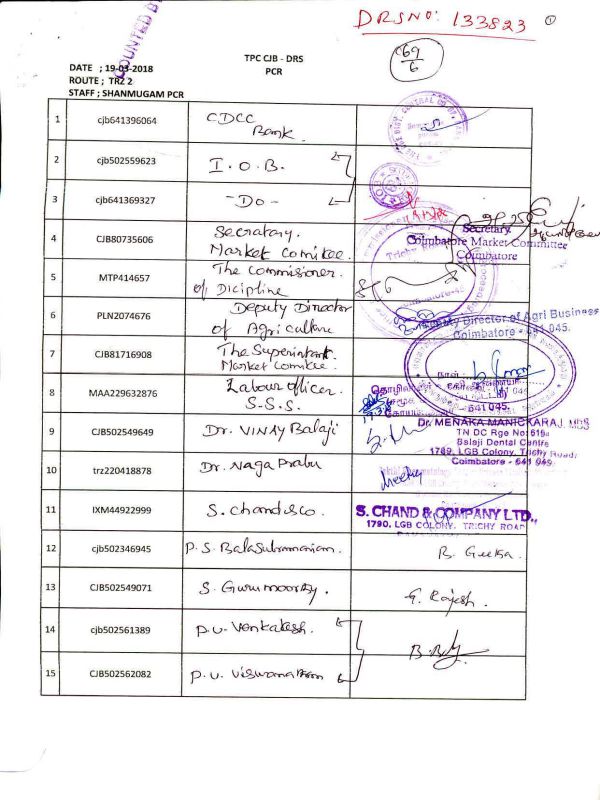 DRSNO: 133823 1
COUNTED B
TPC CJB - DRS
PCR
69
6
DATE ; 19-03-2018
ROUTE ; TRZ 2
STAFF ; SHANMUGAM PCR
1 cjb641396064 CDCC
Bank.
2 cjb502559623 I.O.B.
3 cjb641369327 -Do-
4 CJB80735606 Secratary.
Market Comikee.
Secretary
Coimbatore Market Committee
Coimbatore
5 MTP414657 The Commisioner.
of Dicipline
6 PLN2074676 Deputy Director
of Agriculture
Deputy Director of Agri Business
Coimbatore - 641 045.
7 CJB81716908 The Superintant.
Market Comikee.
8 MAA229632876 Labour officer.
S.S.S.
641 045.
9 CJB502549649 Dr. VINAY Balaji
Dr. MENAKA MANICKARAJ, MDS
TN DC Rge No: 619a
Balaji Dental Centre
1789, LGB Colony, Trichy Road,
Coimbatore - 641 045
10 trz220418878 Dr. Naga Prabu
Meeka
11 IXM44922999 S. chand&co
S. CHAND & COMPANY LTD.,
1790, LGB COLONY, TRICHY ROAD
12 cjb502346945 P.S. Balasubramaniam. B. Geetha.
13 CJB502549071 S. Gurumoorthy. G. Rajesh.
14 cjb502561389 P.V. Venkatesh.
15 CJB502562082 P.V. Viswanathan